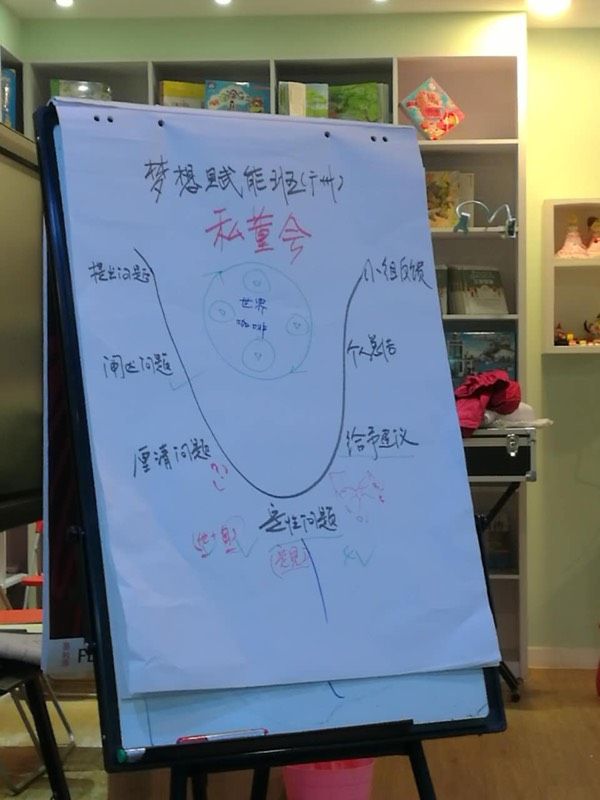 梦想赋能班(广州)
私董会
提出问题
世界
咖啡
阐述问题
厘清问题
定性问题
小组反馈
个人总结
给予建议